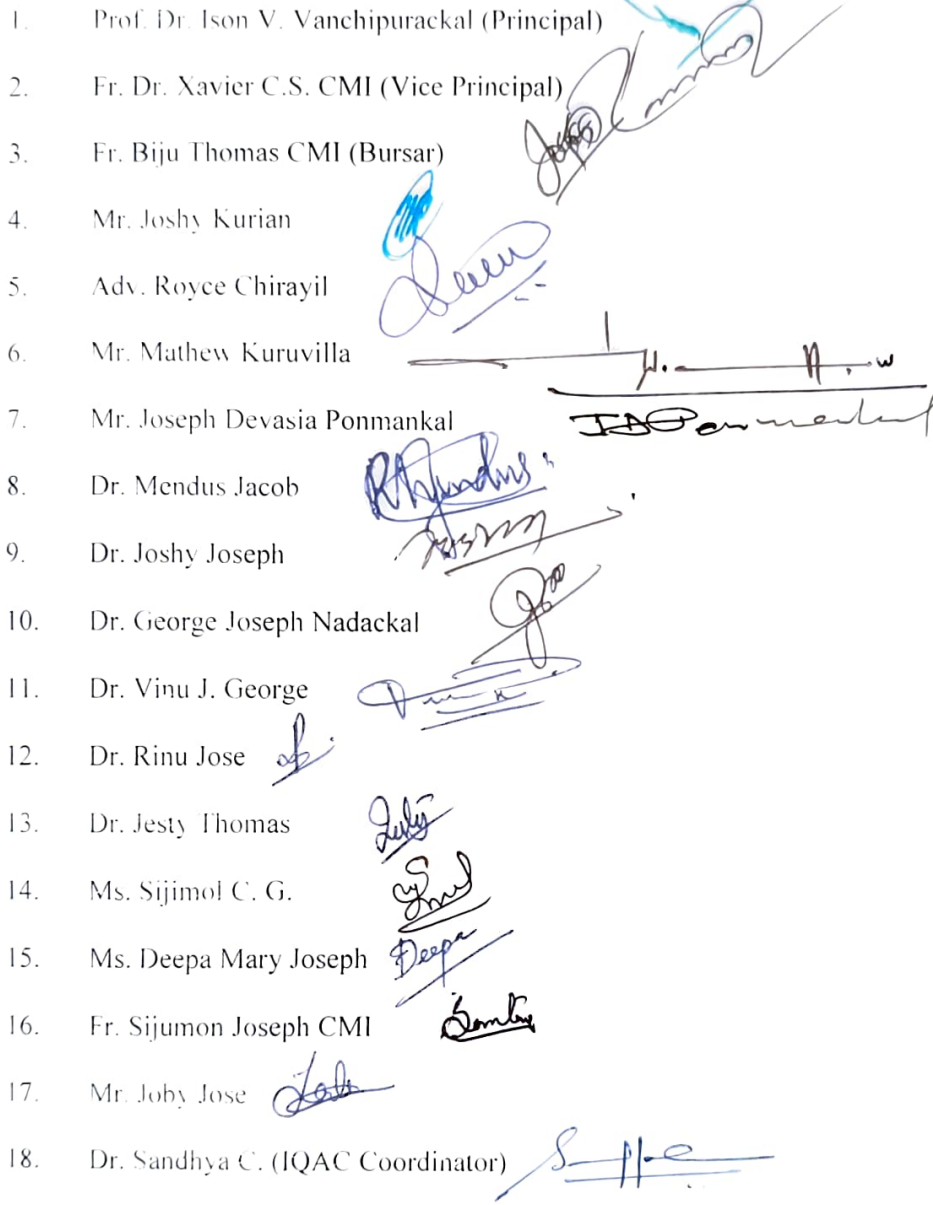 1. Prof. Dr. Ison V. Vanchipurackal (Principal)
2. Fr. Dr. Xavier C.S. CMI (Vice Principal)
3. Fr. Biju Thomas CMI (Bursar)
4. Mr. Joshy Kurian
5. Adv. Royce Chirayil
6. Mr. Mathew Kuruvilla
7. Mr. Joseph Devasia Ponmankal
8. Dr. Mendus Jacob
9. Dr. Joshy Joseph
10. Dr. George Joseph Nadackal
11. Dr. Vinu J. George
12. Dr. Rinu Jose
13. Dr. Jesty Thomas
14. Ms. Sijimol C. G.
15. Ms. Deepa Mary Joseph Deepa
16. Fr. Sijumon Joseph CMI
17. Mr. Joby Jose
18. Dr. Sandhya C. (IQAC Coordinator)